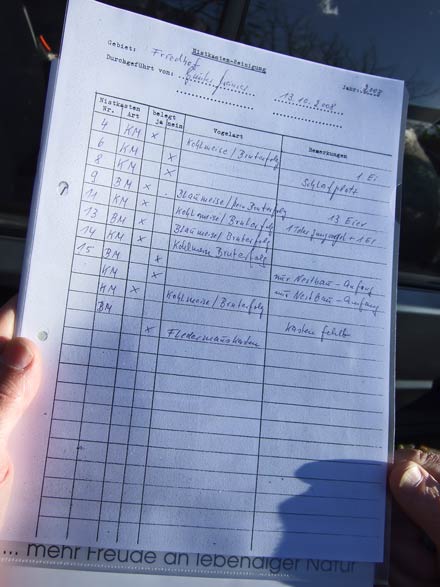 Nistkasten-Reinigung
Gebiet: Friedhof Jahr: 2008
Durchgeführt von: 13.10.2008
Nistkasten belegt Vogelart Bemerkungen
Nr. Art ja nein
4 KM x Kohlmeise/Bruterfolg 1 Ei
6 KM x
8 KM x Schlafplatz
9 BM x Blaumeise/kein Bruterfolg 13 Eier
11 KM x Kohlmeise/Bruterfolg
13 BM x Blaumeise/Bruterfolg
14 KM x Kohlmeise Bruterfolg
15 BM x nur Nestbau-Anfang
KM x nur Nestbau-Anfang
KM x Kohlmeise/Bruterfolg
BM Kasten fehlt
x Fledermauskasten
... mehr Freude an lebendiger Natur